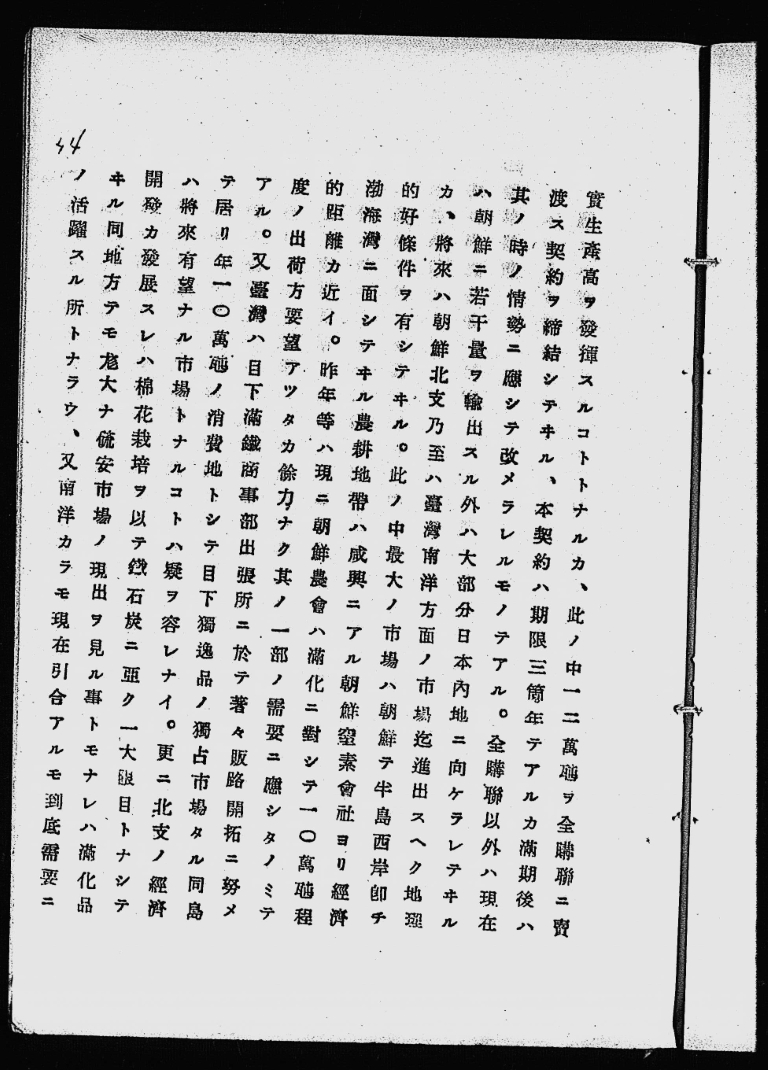 實生產高ヲ發揮スルコトトナルカ、此ノ中一二萬瓲ヲ全購聯ニ賣
渡ス契約ヲ締結シテヰル、本契約ハ期限三箇年テアルカ滿期後ハ
其ノ時ノ情勢ニ應シテ改メラレルモノテアル。全購聯以外ハ現在
ハ朝鮮ニ若干量ヲ輸出スル外ハ大部分日本內地ニ向ケラレテヰル
カ、將來ハ朝鮮北支乃至ハ臺灣南洋方面ノ市場迄進出スヘク地理
的好條件ヲ有シテヰル。此ノ中最大ノ市場ハ朝鮮テ半島西岸卽チ
渤海灣ニ面シテヰル農耕地帶ハ咸興ニアル朝鮮窒素會社ヨリ經濟
的距離カ近イ。昨年等ハ現ニ朝鮮農會ハ滿化ニ對シテ一〇萬瓲程
度ノ出荷方要望アツタカ餘力ナク其ノ一部ノ需要ニ應シタノミテ
アル。又臺灣ハ目下滿鐵商事部出張所ニ於テ著々販路開拓ニ努メ
テ居リ年一〇萬瓲ノ消費地トシテ目下獨逸品ノ獨占市場タル同島
ハ將來有望ナル市場トナルコトハ疑ヲ容レナイ。更ニ北支ノ經濟
開發カ發展スレハ棉花栽培ヲ以テ鐵石炭ニ亞ク一大眼目トナシテ
ヰル同地方テモ尨大ナ硫安市場ノ現出ヲ見ル事トモナレハ滿化品
ノ活躍スル所トナラウ、又南洋カラモ現在引合アルモ到底需要ニ
44